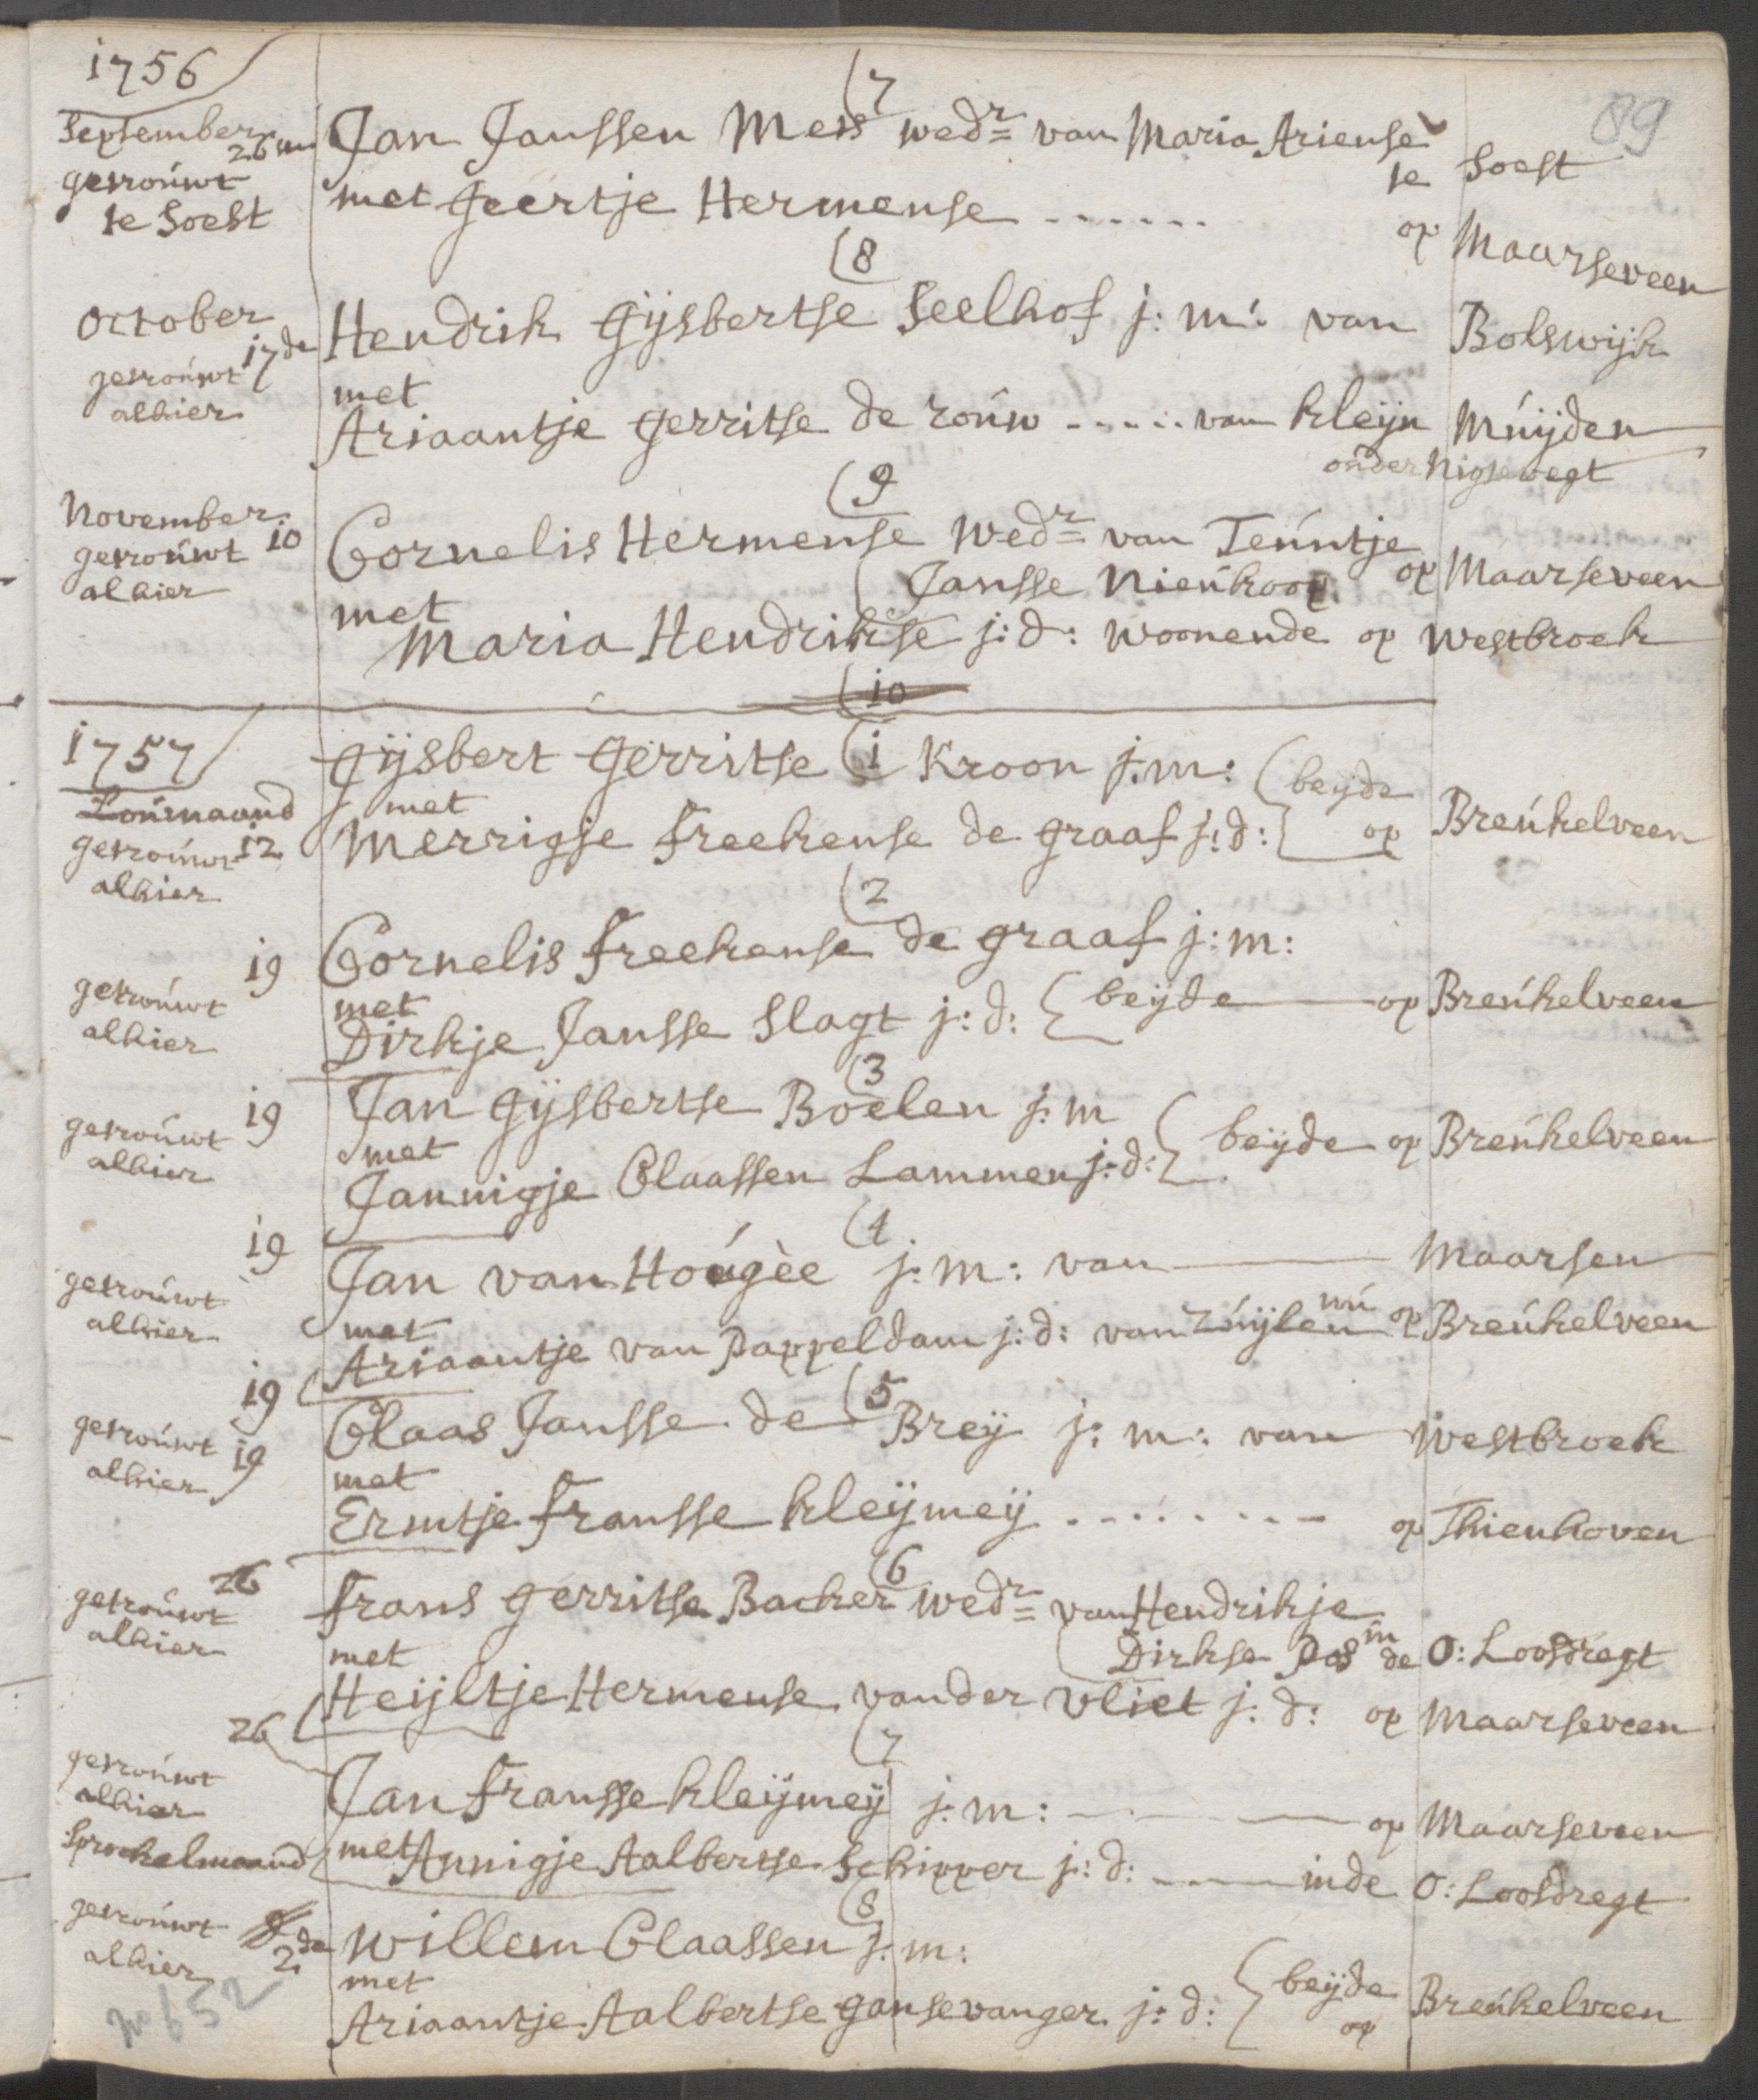 1756
89
(7
September
26
getrouwt
te Soest
Jan Janssen Mess wedr van Maria Ariense
te Soest
met Geertje Hermense .......
op Maarseveen
(8
October
17de
getrouwt
alhier
Hendrik Gijsbertse Seelhof j: m: van Bolswijk
met
Ariaantje Gerritse de rouw ...... van kleijn Muijden
onder Nigtevegt
(9
November
10
getrouwt
alhier
Cornelis Hermense wedr van Teuntje
Jansse Nieukoop op Maarseveen
met
Maria Hendrikse j: d: woonende op Westbroek
(10
1757
Loumaand
getrouwt 12
alhier
Gijsbert Gerritse (1 Kroon j:m: beijde
met
Merrigje Freekense de graaf j: d: op Breukelveen
(2
19
getrouwt
alhier
Cornelis Freekense de graaf j: m:
met
Dirkje Jansse Slagt j: d: beijde op Breukelveen
(3
19
getrouwt
alhier
Jan Gijsbertse Boelen j: m
met beijde op Breukelveen
Jannigje Claassen Lammen j: d:
(4
19
getrouwt
alhier
Jan van Hougèe j: m: van Maarsen
met nú
Ariaantje van Pappeldam j: d: van Zuijlen op Breukelveen
19
getrouwt 19
alhier
Claas Jansse de (5 Breij j: m: van Westbroek
met
Ermtje Fransse kleijmeij ......... op Thienhoven
(6
26
getrouwt
alhier
Frans Gerritse Backer wedr van Hendrikje
Dirkse Pos in de O: Loosdregt
met
Heijltje Hermense van der Vliet j: d: op Maarseveen
(7
26
getrouwt
alhier
Jan Fransse kleijmeij j: m: op Maarseveen
Sprokelmaand
met Annigje Aalbertse Schipper j: d: in de O: Loosdregt
(8
getrouwt
2de
alhier
Willem Claassen j: m:
met
beijde
Ariaantje Aalbertse gansevanger j: d: op Breukelveen
No 652